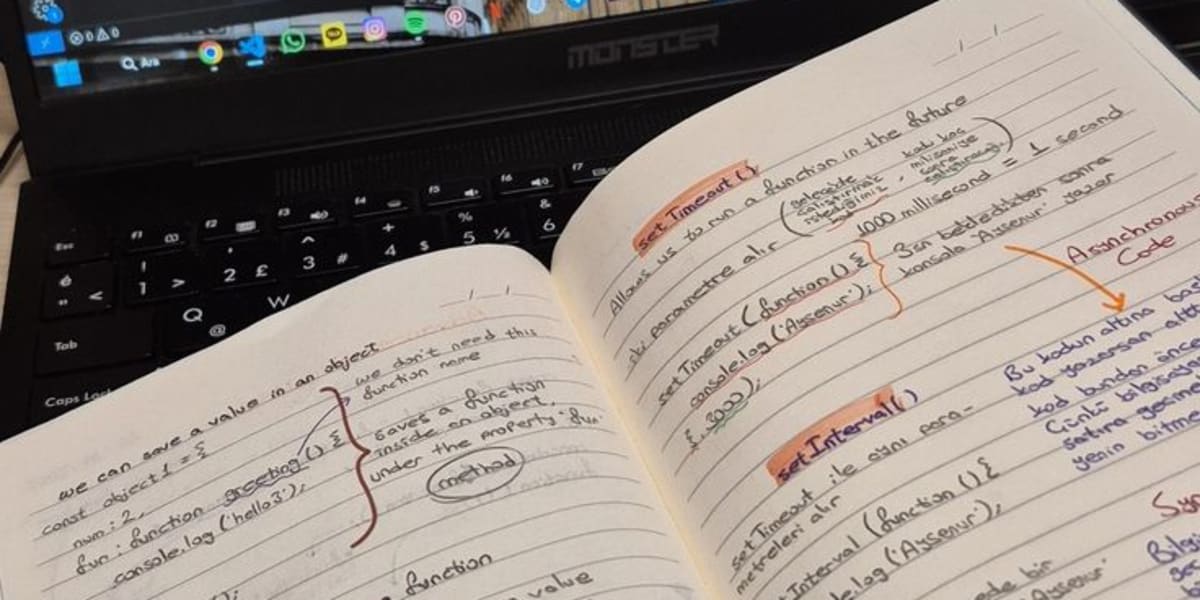 Ara
MONSTER
Esc
f1
f2
f3
f4
f5
f6
f7
é ! ' ^ + % &
" < 1 > 2 £ 3 # 4 $ 5 ½ 6
Tab
Q @ W
Caps Lock
we can save a value in an object
const object1 = {
num: 2,
fun: function greeting () {
console.log('hello3');
we don't need this
function name
saves a function
inside an object,
under the property "fun"
method
function
value
setTimeout()
Allows us to run a function in the future
iki parametre alır (gelecekte çalıştırmak istediğimiz, kodu kaç milisaniye sonra çalıştıracağı)
1000 millisecond = 1 second
setTimeout(function () {
console.log('Aysenur');
}, 3000);
3sn bekledikten sonra
konsola 'Aysenur' yazar
Asynchronous
Code
Bu kodun altına
kod yazarsan
kod bundan önce
Çünkü
satıra
yenin
setInterval()
setTimeout ile aynı para-
metreleri alır
Interval (function () {
log('Aysenur');
bir
'Aysenur'